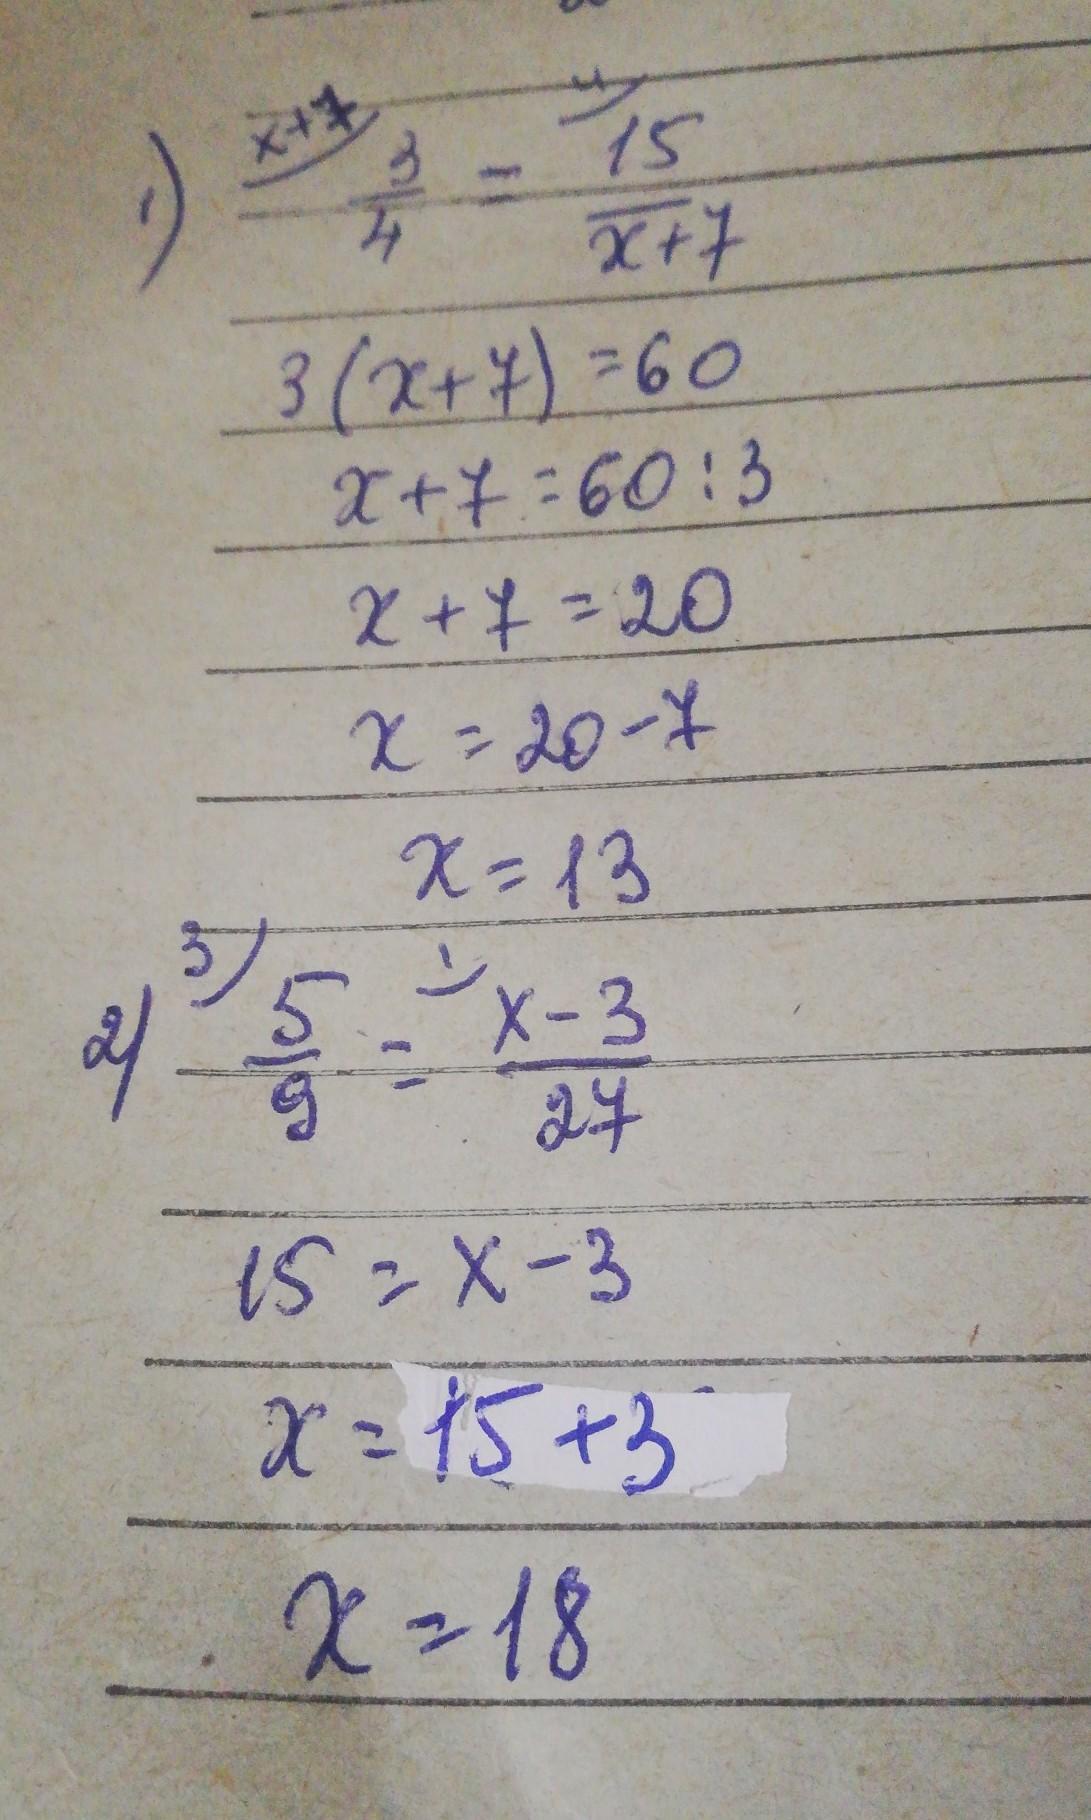 1) x+7) 3/4 = 4) 15/x+7
3(x+7) = 60
x+7 = 60:3
x+7 = 20
x = 20-7
x = 13
2) 3) 5/9 = 1) x-3/27
15 = x-3
x = 15+3
x = 18